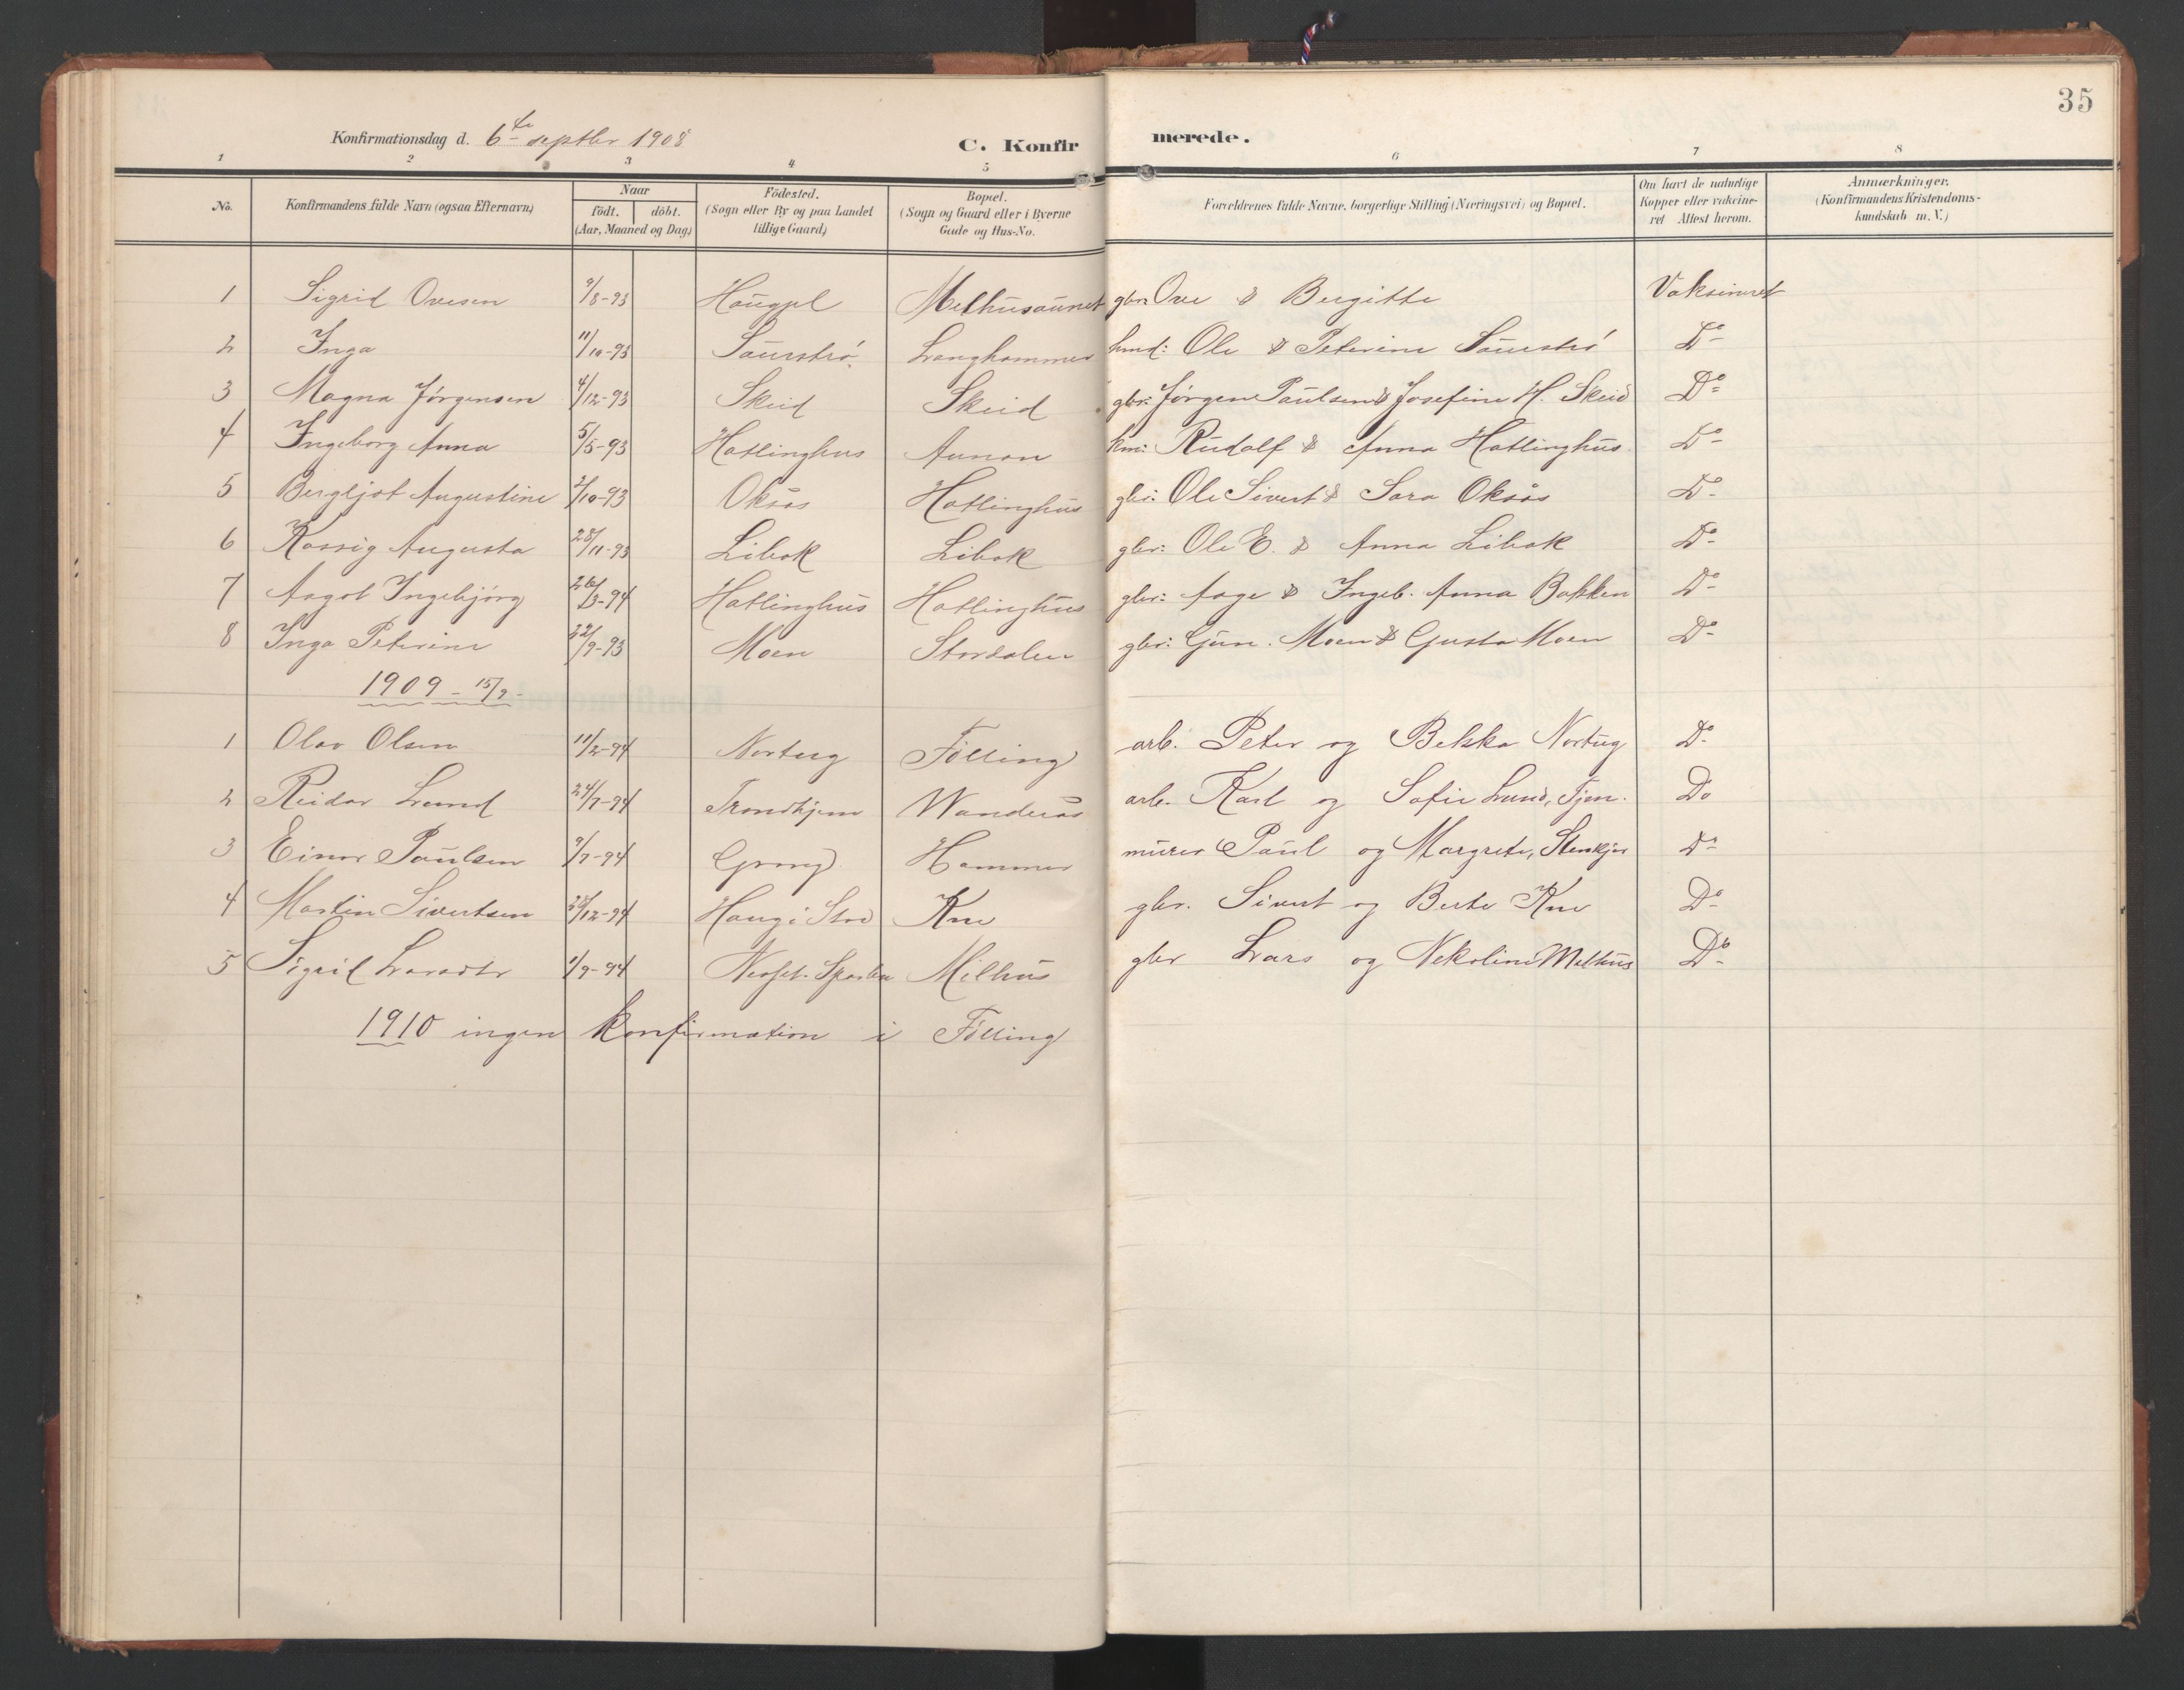 35
Konfirmationsdag d. 6te septbr 1908 C. Konfirmerede.
1 2 3 4 5 6 7 8
No. Konfirmandens fulde Navn (ogsaa Efternavn) Naar födt. döbt. (Aar, Maaned og Dag) Födested. (Sogn eller By og paa Landet tillige Gaard) Bopæl. (Sogn og Gaard eller i Byerne Gade og Hus-No. Forældrenes fulde Navne, borgerlige Stilling (Næringsvei) og Bopæl. Om havt de naturlige Kopper eller vakcineret Attest herom. Anmærkninger. (Konfirmandens Kristendomskundskab m. V.)
1 Sigrid Ovesen 9/8-93 Haugpl Melhusaunet gbr: Ove & Bergitte Vaksineret
2 Inga 11/10-93 Saurstrø Langhammer hmd: Ole & Peterine Saurstrø Do
3 Magna Jørgensen 4/12-93 Skeid Skeid gbr: Jørgen Paulsen & Josefine H. Skeid Do
4 Ingeborg Anna 5/5-93 Hatlinghus Aunan hm: Rudolf & Anna Hatlinghus Do
5 Bergljot Augustine 2/10-93 Oksås Hatlinghus gbr: Ole Sivert & Sara Oksås Do
6 Kassig Augusta 28/11-93 Libak Libak gbr: Ole E. & Anna Libak Do
7 Aagot Ingebjørg 26/3-94 Hatlinghus Hatlinghus gbr: Aage & Ingeb. Anna Bakken Do
8 Inga Peterine 22/9-93 Moen Stordalen gbr: Gun. Moen & Gusta Moen Do
1909 - 15/9-
1 Olav Olsen 11/2-94 Nortug Følling arb. Peter og Bekka Nortug Do
2 Reidar Lund 24/7-94 Trondhjem Wanderås arb. Karl og Sofie Lund, Tjem. Do
3 Einar Paulsen 9/7-94 Grong Hammer murer Paul og Margrete, Stenkjer Do
4 Martin Sivertsen /12-94 Haug i Stod Kne gbr. Sivert og Berte Kne Do
5 Sigrid Larsdtr 1/9-94 Sparbu Melhus gbr Lars og Nekoline Melhus Do
1910 ingen konfirmation i Følling